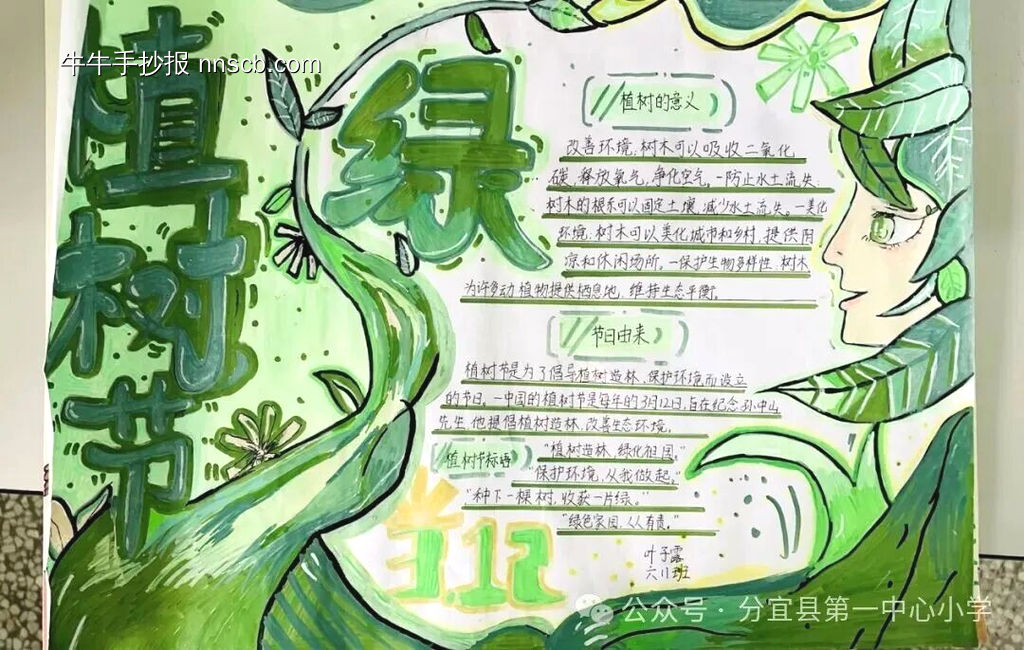 牛牛手抄报 nnscb.com
植树节
绿
植树的意义
改善环境:树木可以吸收二氧化
碳,释放氧气,净化空气。一防止水土流失.
树木的根系可以固定土壤,减少水土流失。一美化
环境:树木可以美化城市和乡村,提供阴
凉和休闲场所。一保护生物多样性:树木
为许多动植物提供栖息地,维持生态平衡。
节日由来
植树节是为了倡导植树造林、保护环境而设立
的节日。一中国的植树节是每年的3月12日,旨在纪念孙中山
先生,他提倡植树造林、改善生态环境。
植树节标语
"植树造林,绿化祖国。"
"保护环境,从我做起。"
"种下一棵树,收获一片绿。"
"绿色家园,人人有责。"
3.12
叶子露
六11班
公众号·分宜县第一中心小学